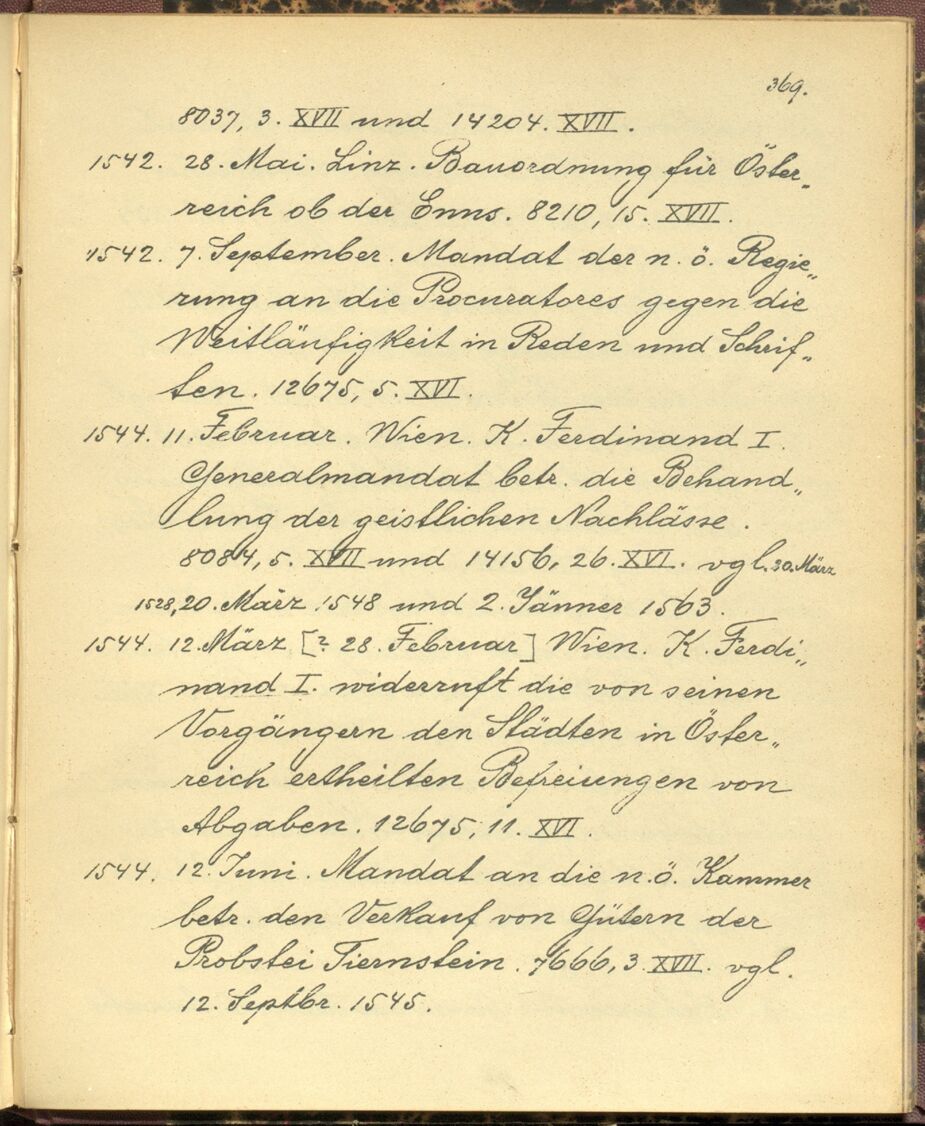 369.
8037, 3. XVII und 14204. XVII.
1542. 28. Mai. Linz. Bauordnung für Öster„
reich ob der Enns. 8210, 15. XVII.
1542. 7. September. Mandat der n. ö. Regie„
rung an die Procuratores gegen die
Weitläufigkeit in Reden und Schrif„
ten. 12675, 5. XVI.
1544. 11. Februar. Wien. K. Ferdinand I.
Generalmandat betr. die Behand„
lung der geistlichen Nachlässe.
8084, 5. XVII und 14156, 26. XVI. vgl. 30. März
1528, 20. März 1548 und 2. Jänner 1563.
1544. 12. März [? 28. Februar] Wien. K. Ferdi„
nand I. widerruft die von seinen
Vorgängern den Städten in Öster„
reich ertheilten Befreiungen von
Abgaben. 12675, 11. XVI.
1544. 12. Juni. Mandat an die n. ö. Kammer
betr. den Verkauf von Gütern der
Probstei Tiernstein. 7666, 3. XVII. vgl.
12. Septbr. 1545.